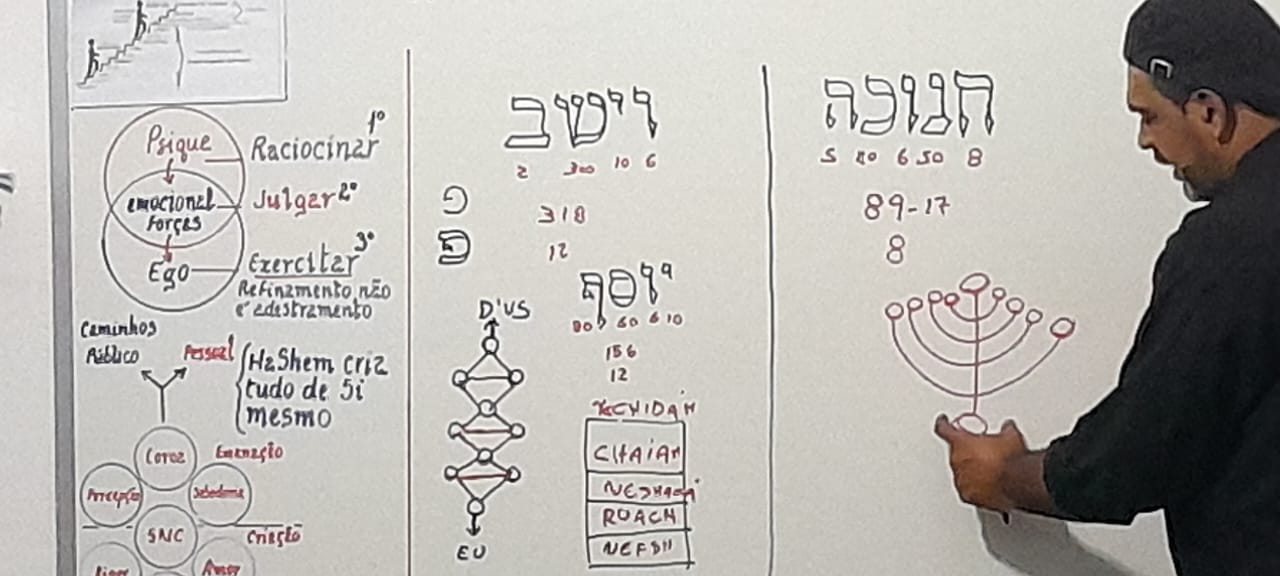 Psique
Raciocinar 1º
emocional
Forças
Julgar 2º
Ego
Exercitar 3º
Refinamento não
é adestramento
Caminhos
Público
Pessoal
HaShem cria
tudo de Si
mesmo
Coroa
Emanação
Percepção
Sabedoria
SNC
Criação
Amor
וישב
2 300 10 6
פ
318
12
יוסף
80 60 6 10
156
12
D'US
EU
YECHIDAH
CHAIAH
NESHAMA
ROACH
NEFSH
חנוכה
5 20 6 50 8
89-17
8